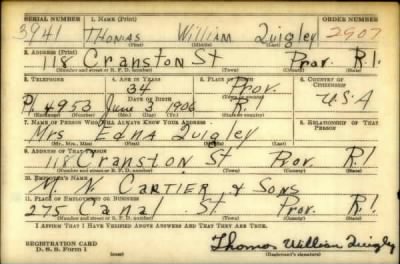 SERIAL NUMBER 1. NAME (Print) ORDER NUMBER
3941 THOMAS William Quigley 2907
(First) (Middle) (Last)
2. ADDRESS (Print)
118 CRANSTON St Prov. R.I.
(Number and street or R. F. D. number) (Town) (County) (State)
3. TELEPHONE 4. AGE IN YEARS 5. PLACE OF BIRTH 6. COUNTRY OF CITIZENSHIP
34 Prov.
DATE OF BIRTH
Pl 4953 June 3, 1906 R.I. U.S.A
7. NAME OF PERSON WHO WILL ALWAYS KNOW YOUR ADDRESS 8. RELATIONSHIP OF THAT PERSON
Mrs Edna Quigley
(Mr., Mrs., Miss) (First) (Middle) (Last)
9. ADDRESS OF THAT PERSON
118 CRANSTON St Prov. R.I
(Number and street or R. F. D. number) (Town) (County) (State)
10. EMPLOYER'S NAME
M. N. CARTIER & SONS
11. PLACE OF EMPLOYMENT OR BUSINESS
275 Canal St. Prov. R.I
(Number and street or R. F. D. number) (Town) (County) (State)
I AFFIRM THAT I HAVE VERIFIED ABOVE ANSWERS AND THAT THEY ARE TRUE.
REGISTRATION CARD
D. S. S. Form 1 (over) Thomas William Quigley
(Registrant's signature)